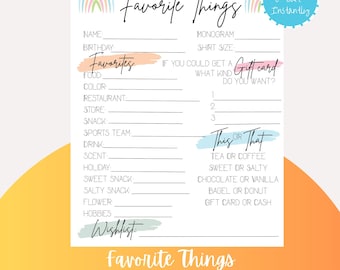 Favorite Things
Instantly
NAME
MONOGRAM
BIRTHDAY
SHIRT SIZE
Favorites
FOOD
COLOR
RESTAURANT
STORE
SNACK
SPORTS TEAM
DRINK
SCENT
HOLIDAY
SWEET SNACK
SALTY SNACK
FLOWER
HOBBIES
Wishlist
IF YOU COULD GET A
WHAT KIND Gift card
DO YOU WANT?
1
2
3
This or That
TEA OR COFFEE
SWEET OR SALTY
CHOCOLATE OR VANILLA
BAGEL OR DONUT
GIFT CARD OR CASH
Favorite Things